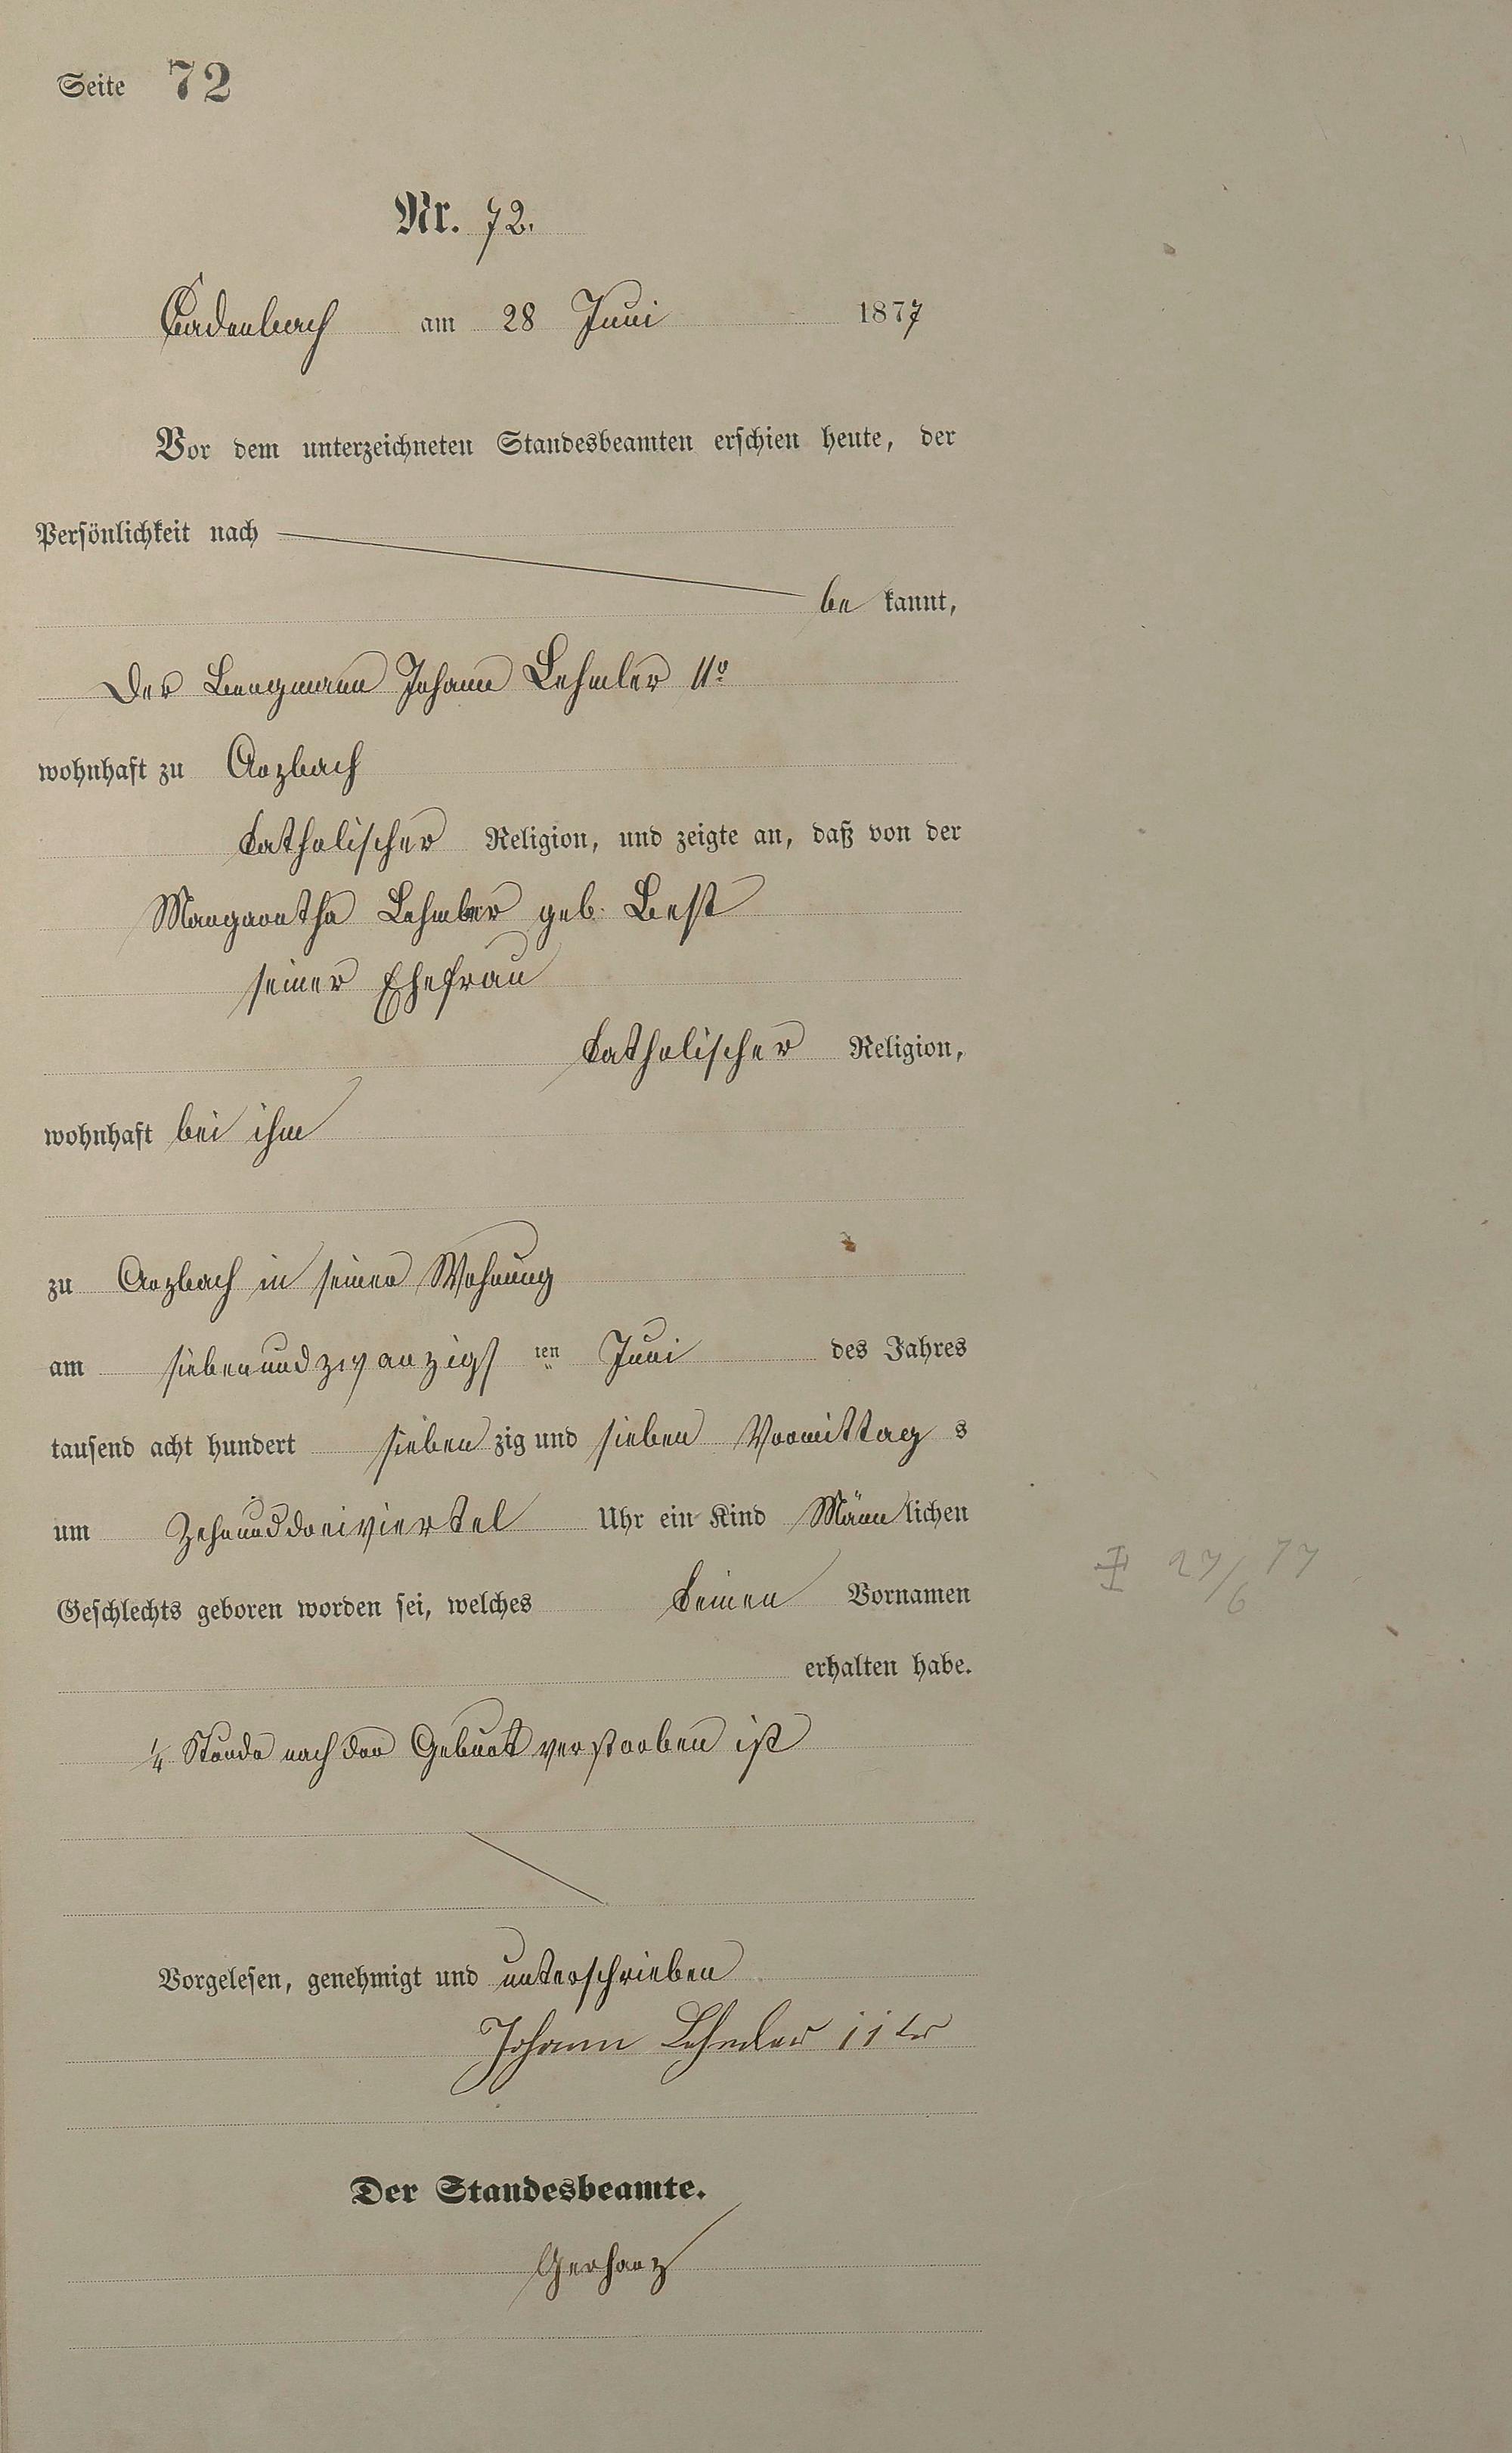 Seite 72
Nr. 72.
Cadenbach am 28 Juni 1877
Vor dem unterzeichneten Standesbeamten erschien heute, der
Persönlichkeit nach
be kannt,
Der Bergmann Johann Lehmler IIr
wohnhaft zu Arzbach
katholischer Religion, und zeigte an, daß von der
Margaretha Lehmler geb. Best
seiner Ehefrau
katholischer Religion,
wohnhaft bei ihm
zu Arzbach in seiner Wohnung
am siebenundzwanzigs ten Juni des Jahres
tausend acht hundert sieben zig und sieben Vormittag s
um Zehnunddreiviertel Uhr ein Kind Männ lichen
Geschlechts geboren worden sei, welches keinen Vornamen
27/6 77
erhalten habe.
1/4 Stunde nach der Geburt verstorben ist
Vorgelesen, genehmigt und unterschrieben
Johann Lehmler IIter
Der Standesbeamte.
Gerharz